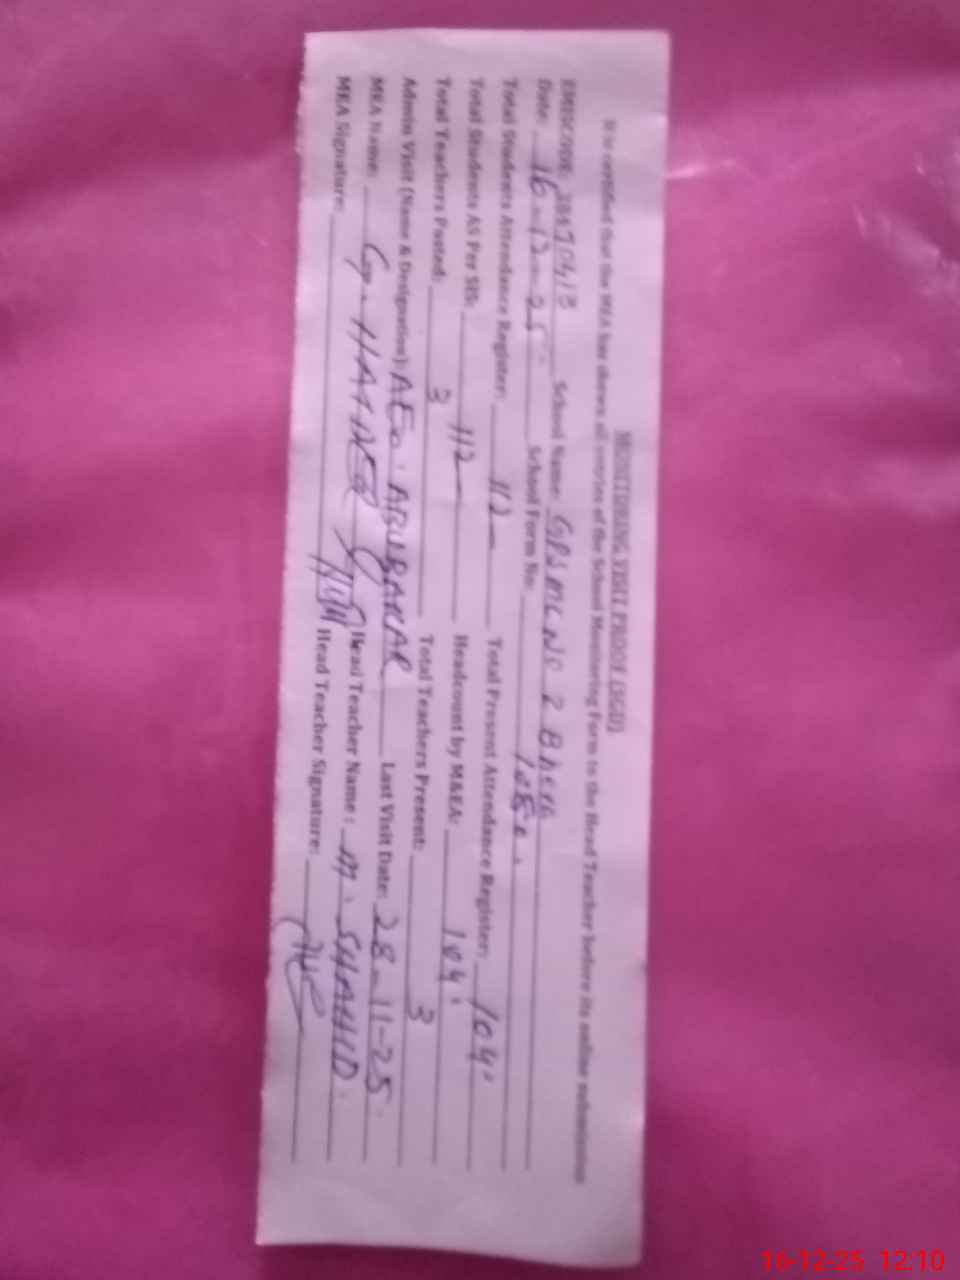 MONITORING VISIT PROOF (SGD)
It is certified that the MEA has shown all entries of the School Monitoring Form to the Head Teacher before its online submission
EMISCODE: 38470413 School Name: GPS MC NO 2 Bhera
Date: 16-12-25 School Form No:
Total Students Attendance Register: 112 Total Present Attendance Register: 104
Total Students AS Per SIS: 112 Headcount by M&EA: 104
Total Teachers Posted: 3 Total Teachers Present: 3
Admin Visit (Name & Designation): AEO. ABUBAKAR Last Visit Date: 28-11-25
MEA Name: Head Teacher Name: M. SHAHID
MEA Signature: Head Teacher Signature:
16-12-25 12:10